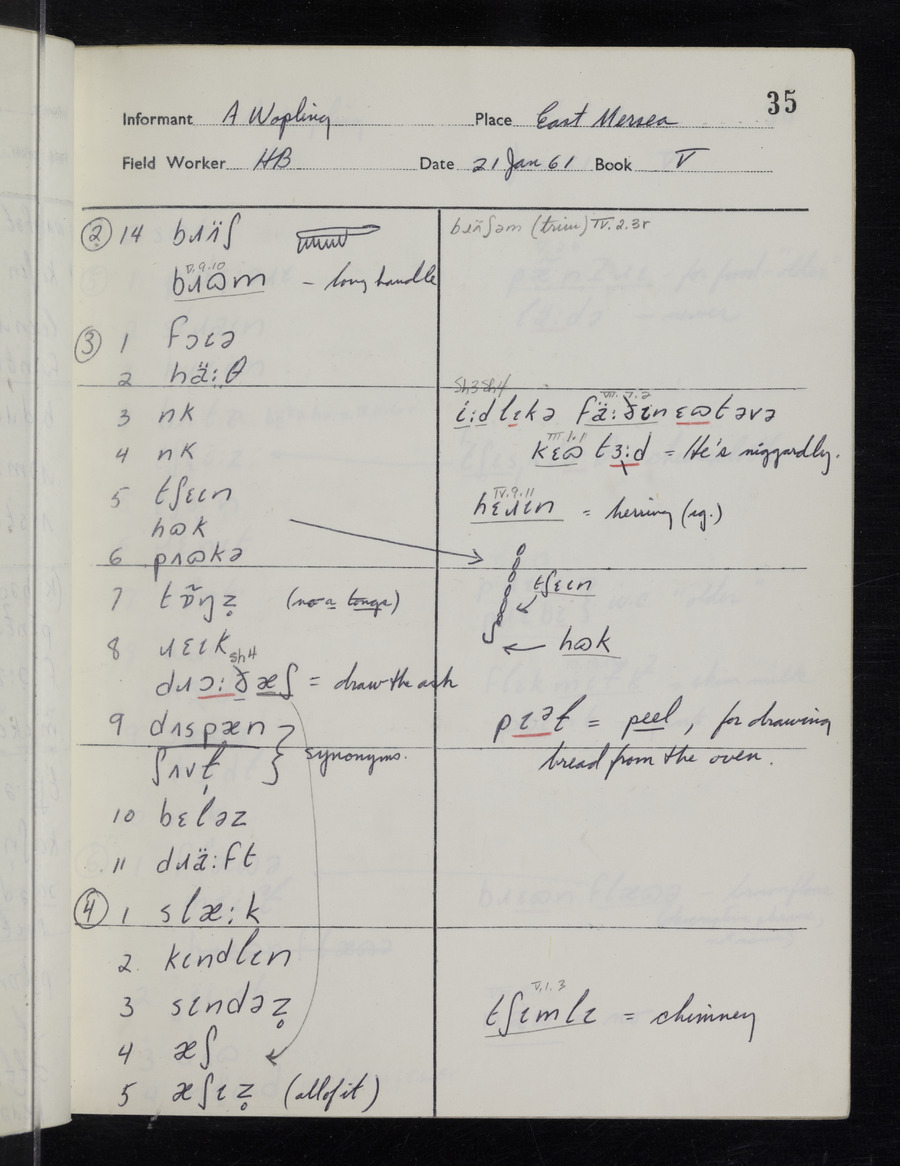 35
Informant A Wopling Place East Mersea
Field Worker HB Date 21 Jan 61 Book V
② 14 bɹɪ̈ʃ
V.9.10
bɹɷm – long handle
③ 1 fɔɩə
2 hä:θ
3 nk
4 nk
5 tʃɛɩn
hɷk
6 pʌɷkə
7 tɒ̃ŋz̥ (no a tongs)
8 ɹɛɩk
sh4
dɹɔ:ðæʃ = draw the ash
9 dʌspæn
ʃʌvɫ } synonyms.
10 bɛləz
11 dɹä:ft
④ 1 slæ:k
2. kɩndlɩn
3 sɩndəz̥
4 æʃ
5 æʃɩz̥ (all of it)
(trim) IV.2.3r
Sh3 Sh4
i:dlɩkə fä:ðɩnɛɷtəvə
III.1.11
kɛɷ tɜ:d = He's niggardly.
IV.9.11
hɛɹɩn = herring (sg.)
tʃɛɩn
hɷk
pɩəɫ = peel, for drawing
bread from the oven.
V.1.3
tʃɩmlɩ = chimney